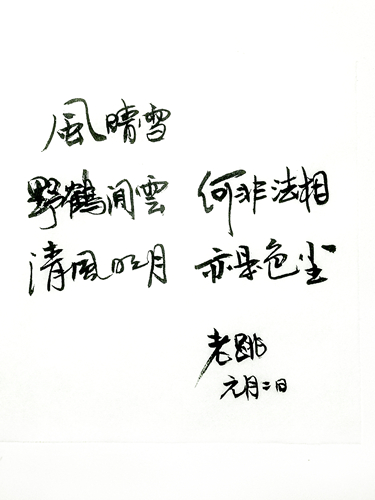 風晴雪
野鶴閒雲 何非法相
清風明月 亦是色尘
老跳
元月二日